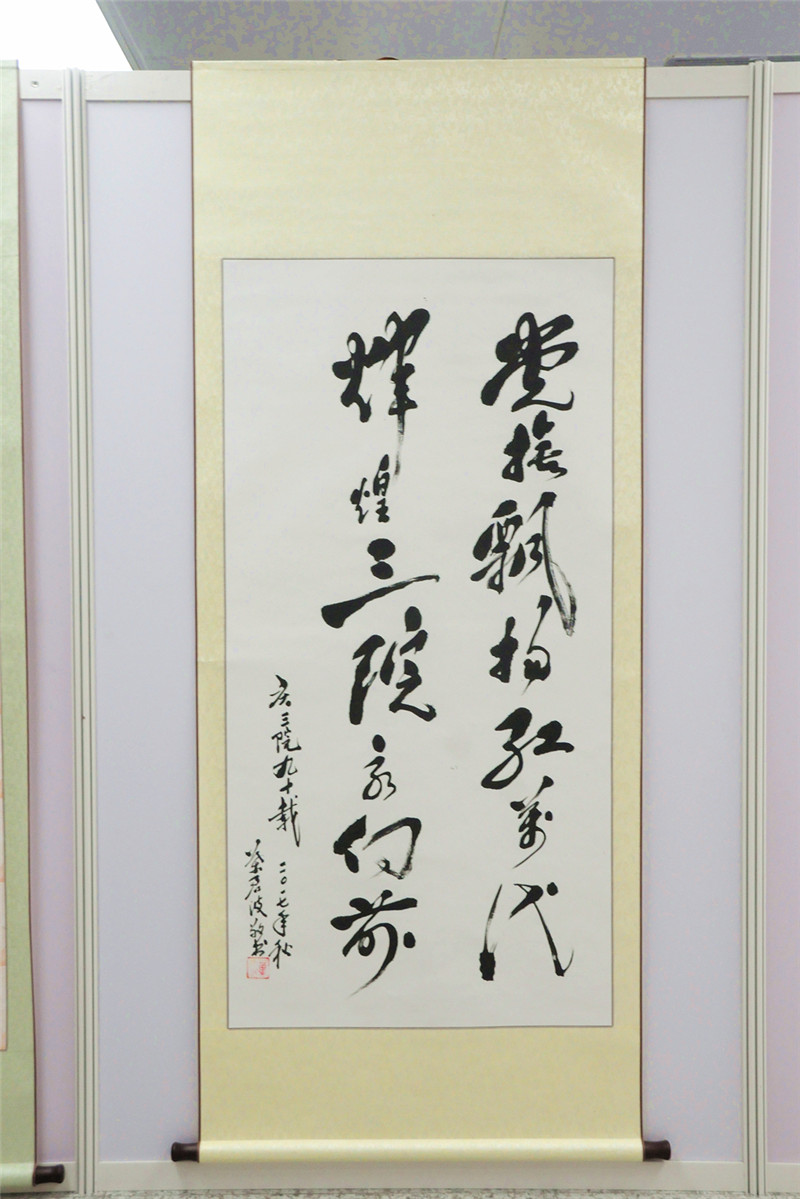 党旗飘扬红萬代
辉煌三院永向前
庆三院九十载 二〇一七年秋
敬书